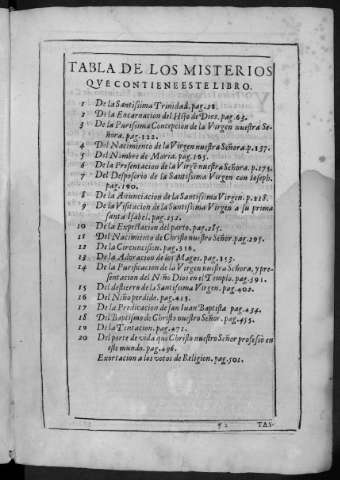 TABLA DE LOS MISTERIOS
QVE CONTIENE ESTE LIBRO.
1 De la Santissima Trinidad. pag.
2 De la Encarnacion del Hijo de Dios. pag. 63.
3 De la Purissima Concepcion de la Virgen nuestra Se-
ñora. pag. 122.
4 Del Nacimiento de la Virgen nuestra Señora. p. 137.
5 Del Nombre de Maria. pag. 165.
6 De la Presentacion de la Virgē nuestra Señora. p. 175.
7 Del Desposorio de la Santissima Virgen con Ioseph.
pag. 190.
8 De la Anunciacion de la Santissima Virgen. p. 218.
9 De la Visitacion de la Santissima Virgen a su prima
santa Isabel. pag. 252.
10 De la Expectacion del parto. pag.
11 Del Nacimiento de Christo nuestro Señor. pag. 295.
12 De la Circuncision. pag. 316.
13 De la Adoracion de los Magos. pag. 353.
14 De la Purificacion de la Virgen nuestra Señora, y pre-
sentacion del Niño Dios en el Templo. pag. 391.
15 Del destierro de la Santissima Virgen. pag. 402.
16 Del Niño perdido. pag. 413.
17 De la Predicacion de san Iuan Baptista. pag. 434.
18 Del Baptismo de Christo nuestro Señor. pag. 455.
19 De la Tentacion. pag. 471.
20 Del porte de vida que Christo nuestro Señor professò en
este mundo. pag. 496.
Exortacion a los votos de Religion. pag. 501.
¶ 2 TAS-